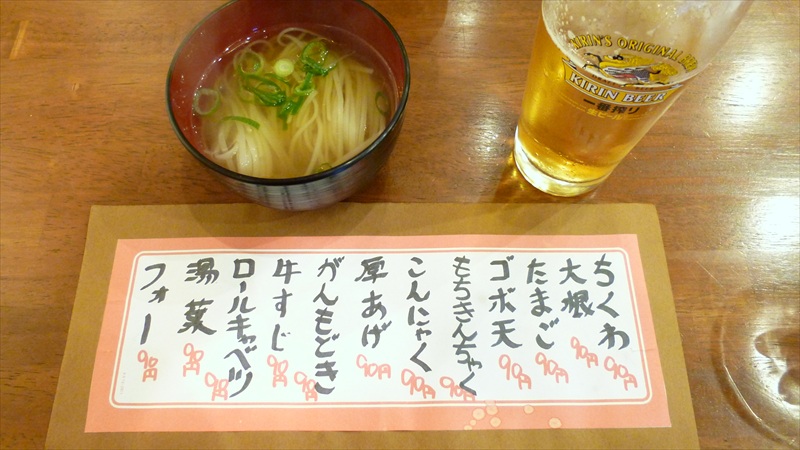 KIRIN'S ORIGINAL
KIRIN BEER
一番搾り
ちくわ 90円
大根 90円
たまご 90円
ゴボ天 90円
もちきんちゃく 90円
こんにゃく 90円
厚あげ 90円
がんもどき 90円
牛すじ 90円
ロールキャベツ 90円
湯葉 90円
フォー 90円